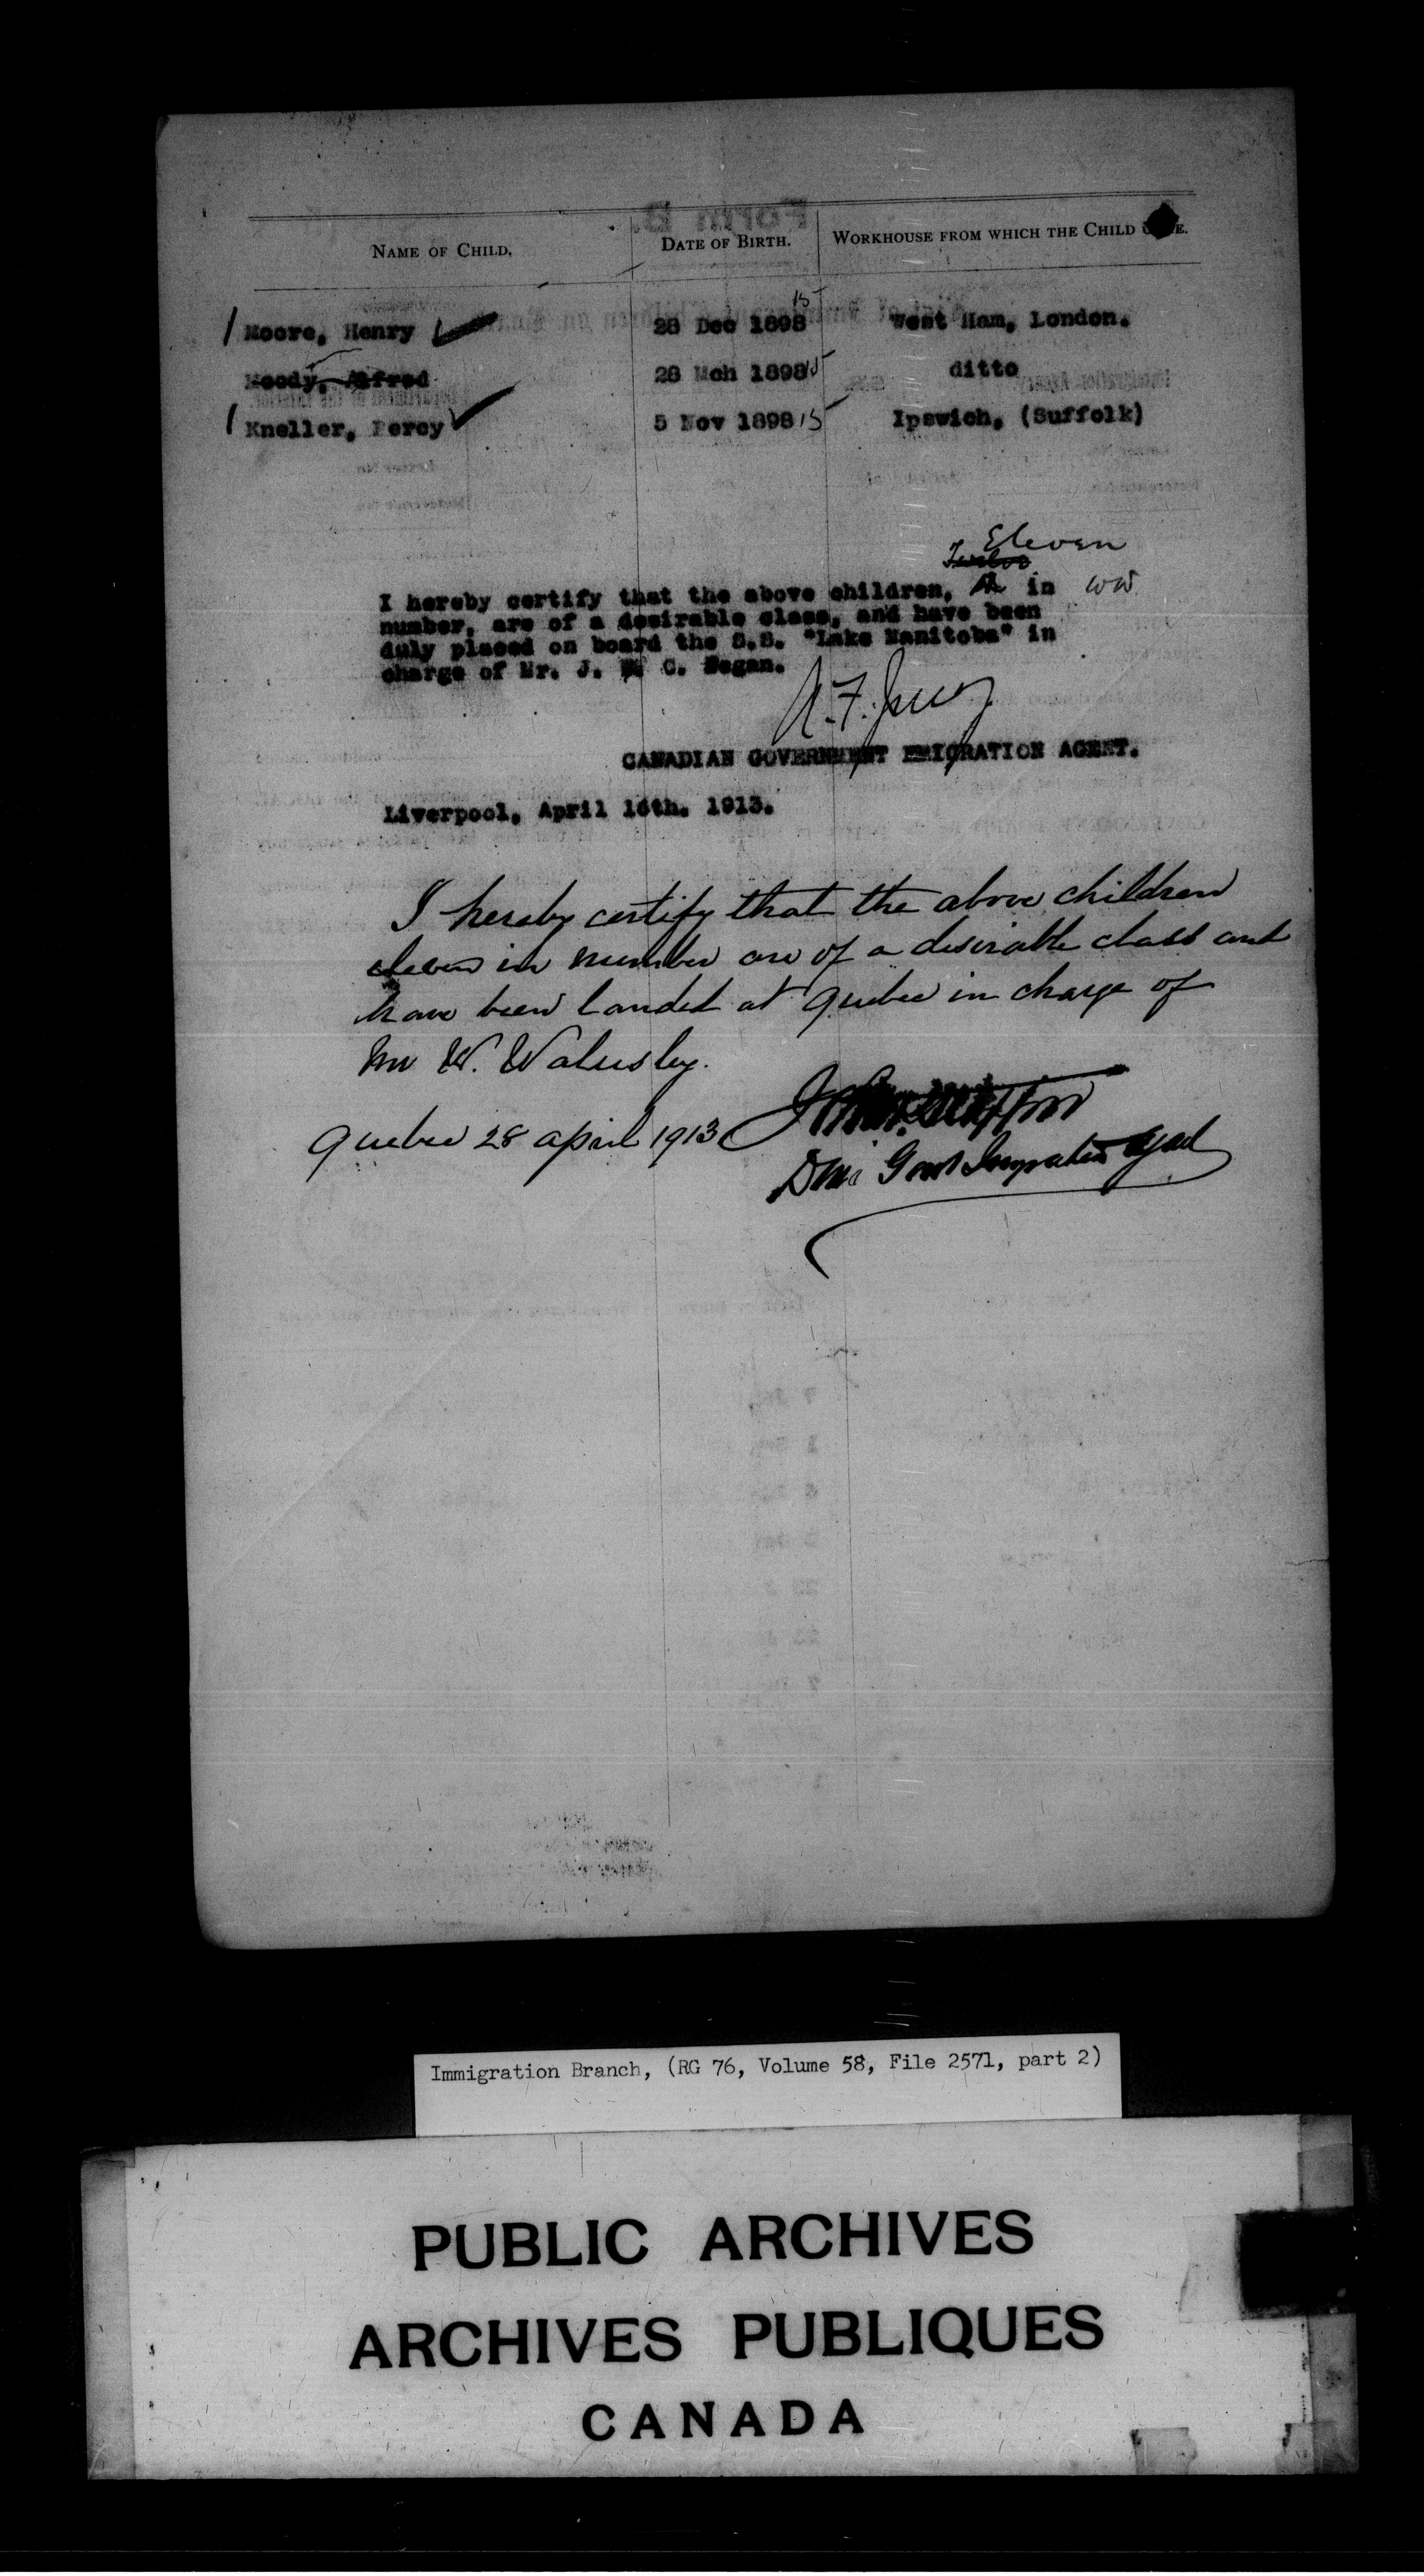 NAME OF CHILD. DATE OF BIRTH. WORKHOUSE FROM WHICH THE CHILD
15
Moore, Henry 28 Dec 1898 West Ham, London.
Moody, Alfred 28 Mch 1898 15 ditto
Kneller, Percy 5 Nov 1898 15 Ipswich, (Suffolk)
Eleven
Twelve
I hereby certify that the above children, in WW
number, are of a desirable class, and have been
duly placed on board the S.S. "Lake Manitoba" in
charge of Mr. J. C. Hegan.
CANADIAN GOVERNMENT EMIGRATION AGENT.
Liverpool, April 16th. 1913.
I hereby certify that the above children
eleven in number are of a desirable class and
have been landed at Quebec in charge of
Mr W. Walmsley.
Quebec 28 april 1913
Govt Immigration Agent
Immigration Branch, (RG 76, Volume 58, File 2571, part 2)
PUBLIC ARCHIVES
ARCHIVES PUBLIQUES
CANADA